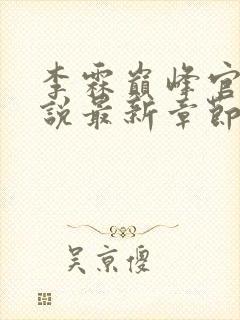 李霖巔峰官
說最新章節
吴京傻